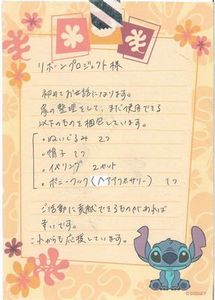 リボーンプロジェクト様
初めてお世話になります。
家の整理をして、まだ使用できる
以下のものを梱包しています。
・ぬいぐるみ 2つ
・帽子 1つ
・イヤリング 2セット
・ポニーフック(ヘアアクセサリー) 1つ
ご活動に貢献できるものがあれば
幸いです。
これからも応援しています。
©DISNEY